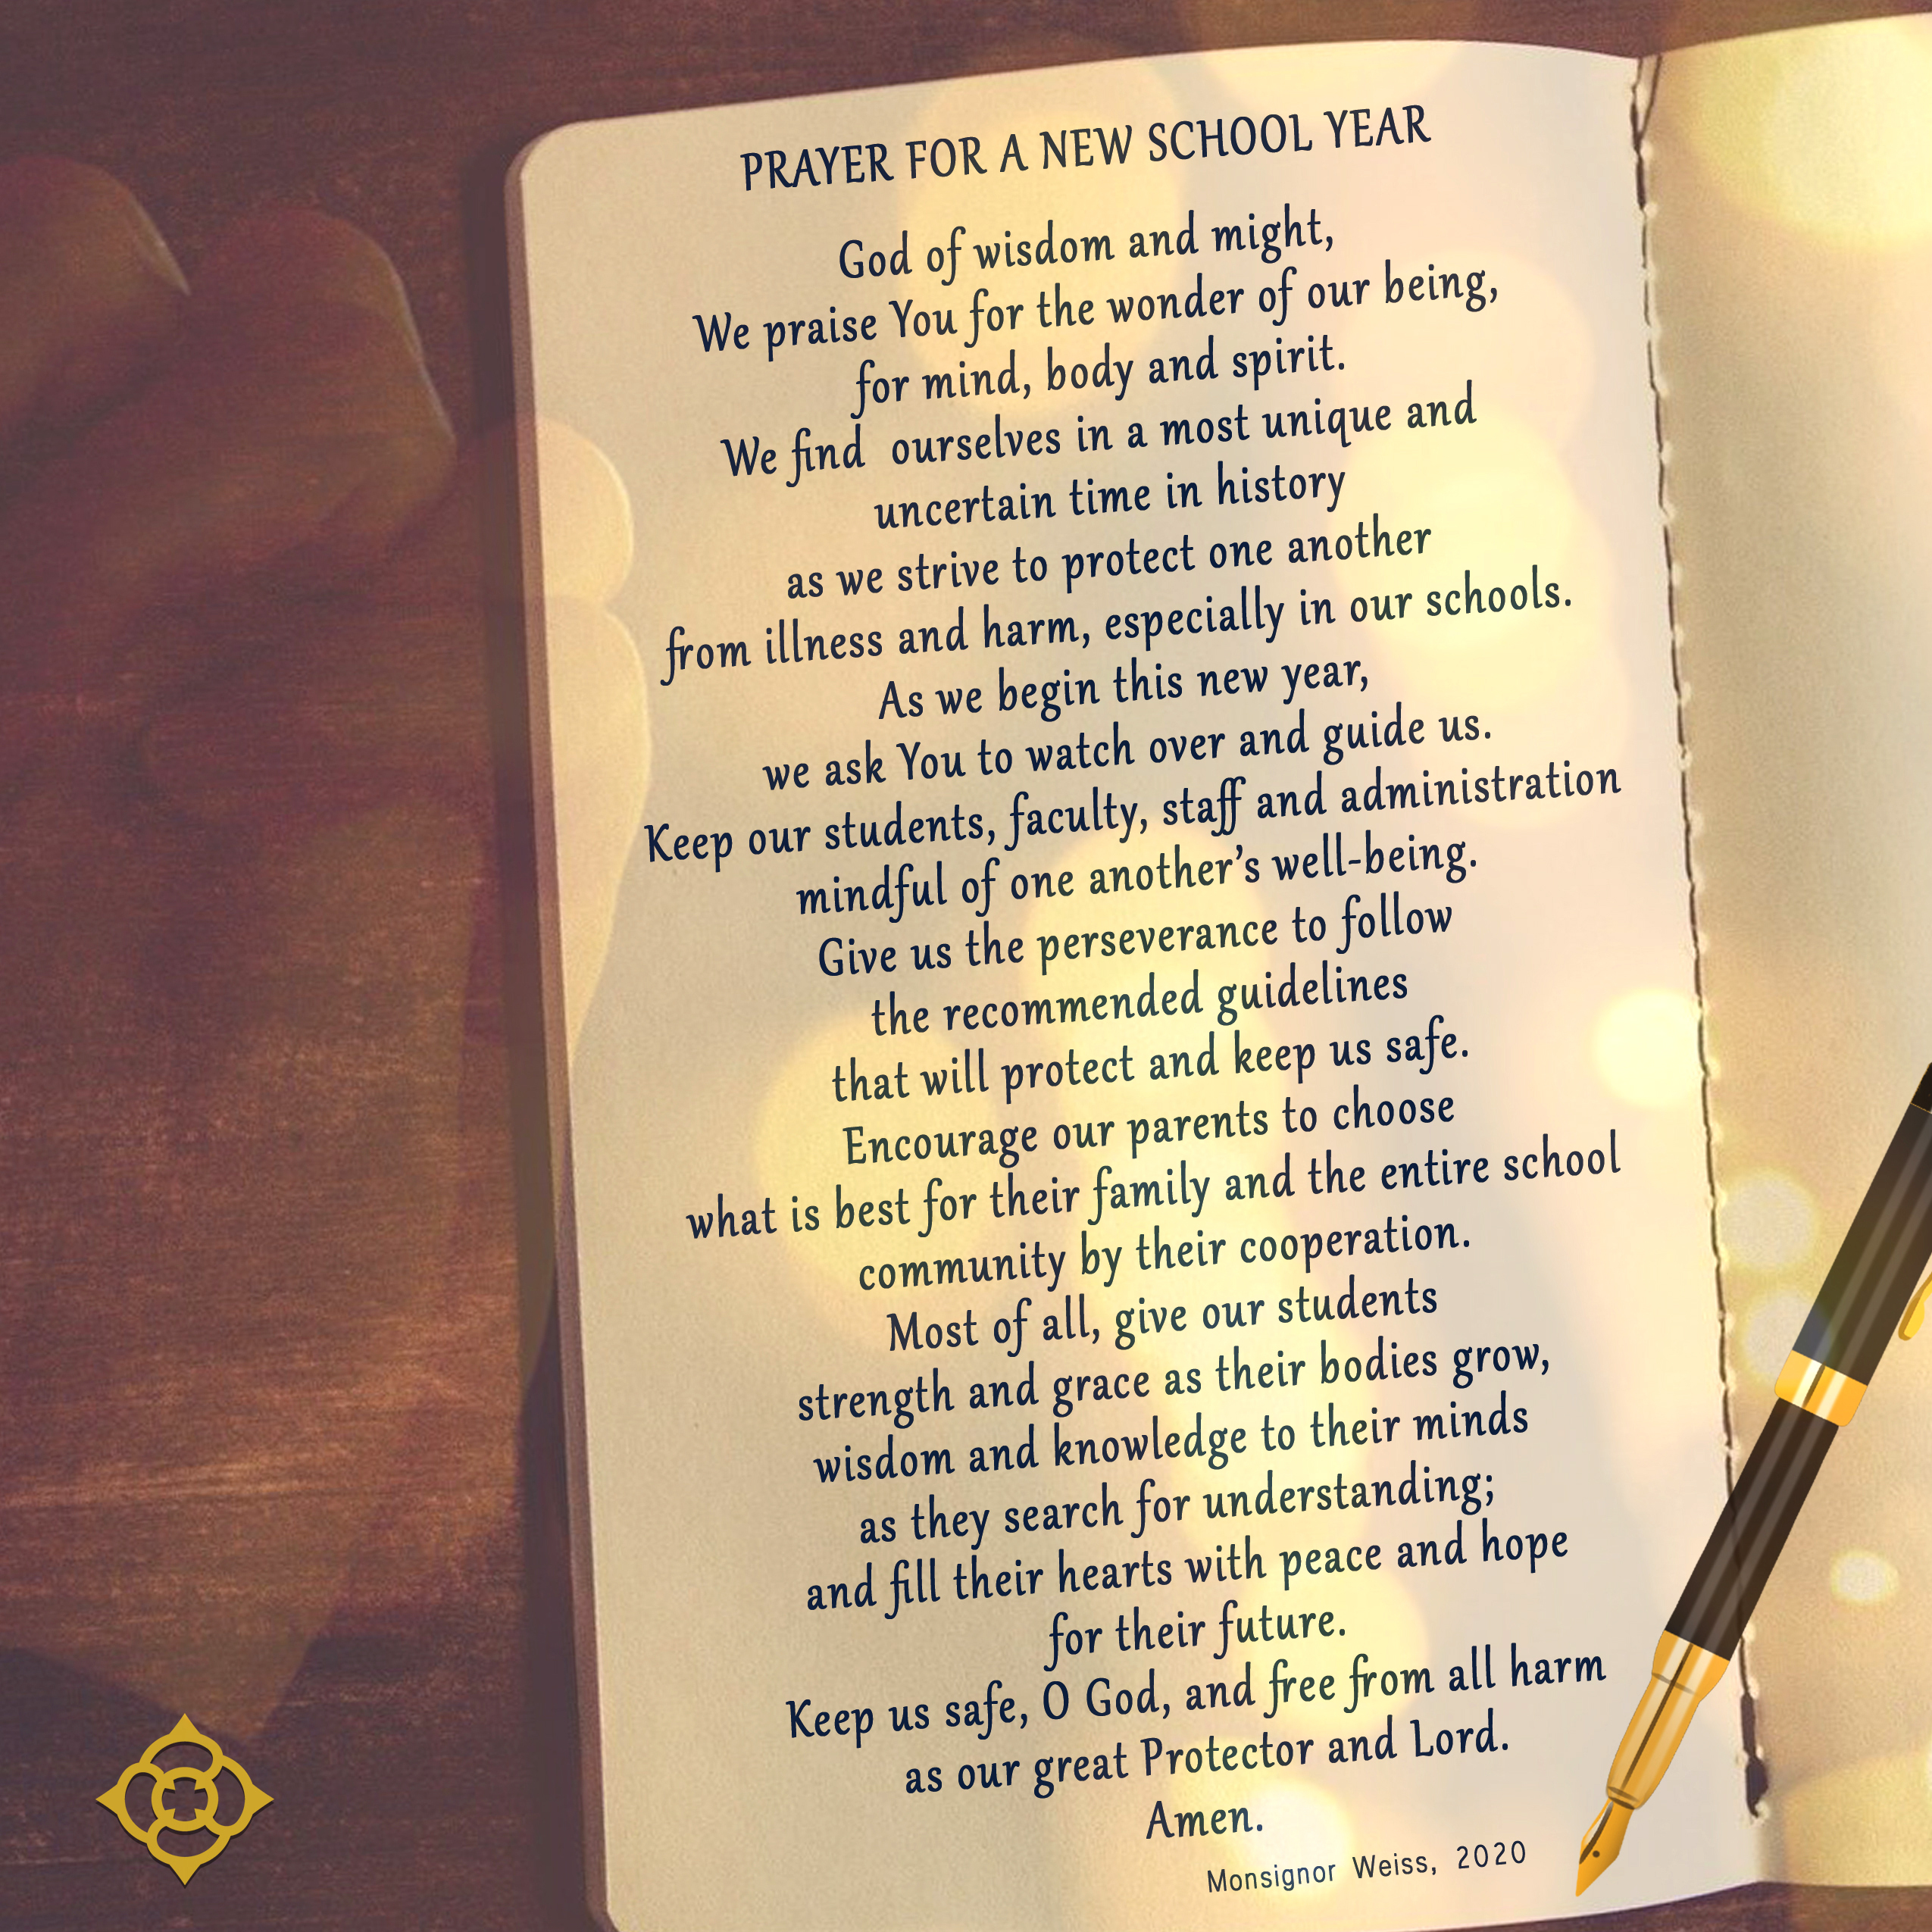 PRAYER FOR A NEW SCHOOL YEAR
God of wisdom and might,
We praise You for the wonder of our being,
for mind, body and spirit.
We find ourselves in a most unique and
uncertain time in history
as we strive to protect one another
from illness and harm, especially in our schools.
As we begin this new year,
we ask You to watch over and guide us.
Keep our students, faculty, staff and administration
mindful of one another’s well-being.
Give us the perseverance to follow
the recommended guidelines
that will protect and keep us safe.
Encourage our parents to choose
what is best for their family and the entire school
community by their cooperation.
Most of all, give our students
strength and grace as their bodies grow,
wisdom and knowledge to their minds
as they search for understanding;
and fill their hearts with peace and hope
for their future.
Keep us safe, O God, and free from all harm
as our great Protector and Lord.
Amen.
Monsignor Weiss, 2020